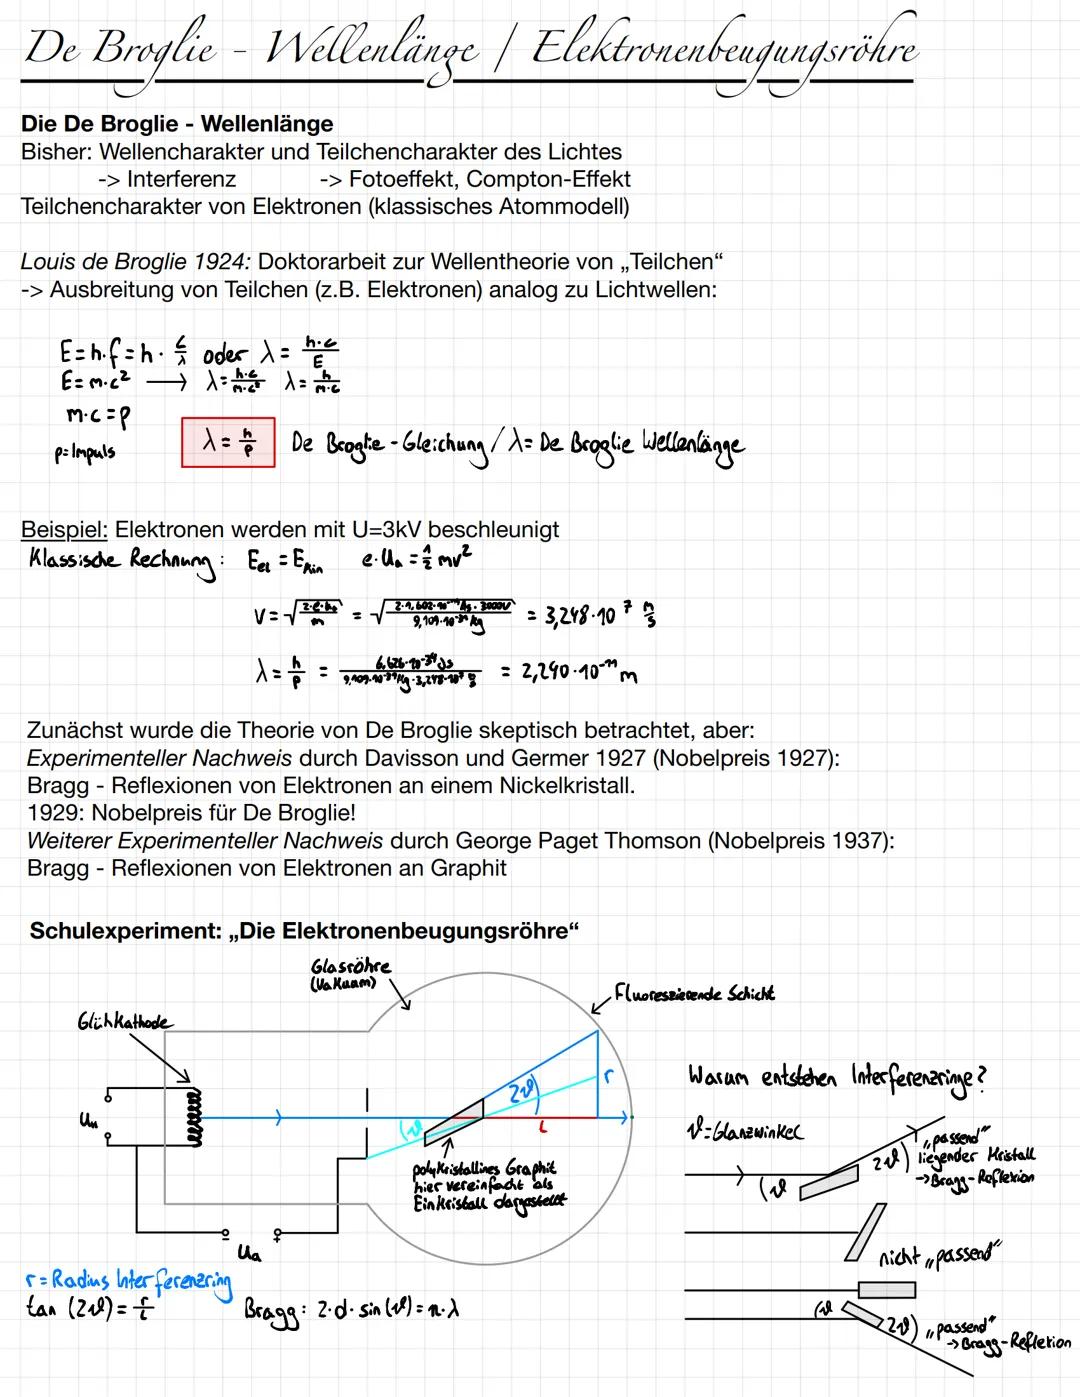 De Broglie - Wellenlänge / Elektronenbeugungsröhre
Die De Broglie - Wellenlänge
Bisher: Wellencharakter und Teilchencharakter des Lichtes
-> Interferenz -> Fotoeffekt, Compton-Effekt
Teilchencharakter von Elektronen (klassisches Atommodell)
Louis de Broglie 1924: Doktorarbeit zur Wellentheorie von „Teilchen“
-> Ausbreitung von Teilchen (z.B. Elektronen) analog zu Lichtwellen:
E=h·f=h· c/λ oder λ= h·c/E
E=m·c² → λ= h·c/m·c² λ= h/m·c
m·c=p
p=Impuls
λ= h/p De Broglie-Gleichung / λ= De Broglie Wellenlänge
Beispiel: Elektronen werden mit U=3kV beschleunigt
Klassische Rechnung: E_el = E_kin e·U_a = 1/2 mv²
v= √(2·e·U_a/m) = √(2·1,602·10⁻¹⁹As·3000V/9,109·10⁻³¹kg) = 3,248·10⁷ m/s
λ= h/p = 6,626·10⁻³⁴Js/9,109·10⁻³¹kg·3,248·10⁷ m/s = 2,240·10⁻¹¹m
Zunächst wurde die Theorie von De Broglie skeptisch betrachtet, aber:
Experimenteller Nachweis durch Davisson und Germer 1927 (Nobelpreis 1927):
Bragg - Reflexionen von Elektronen an einem Nickelkristall.
1929: Nobelpreis für De Broglie!
Weiterer Experimenteller Nachweis durch George Paget Thomson (Nobelpreis 1937):
Bragg - Reflexionen von Elektronen an Graphit
Schulexperiment: „Die Elektronenbeugungsröhre“
Glasröhre
(Vakuum)
Fluoreszierende Schicht
Glühkathode
U_H
2ϑ
r
ϑ
L
polykristallines Graphit
hier vereinfacht als
Einkristall dargestellt
U_a
r=Radius Interferenzring
tan (2ϑ)= r/L
Bragg: 2·d·sin(ϑ)=n·λ
Warum entstehen Interferenzringe?
ϑ=Glanzwinkel
ϑ
2ϑ
„passend“
liegender Kristall
->Bragg-Reflexion
nicht „passend“
ϑ
2ϑ
„passend“
->Bragg-Reflexion